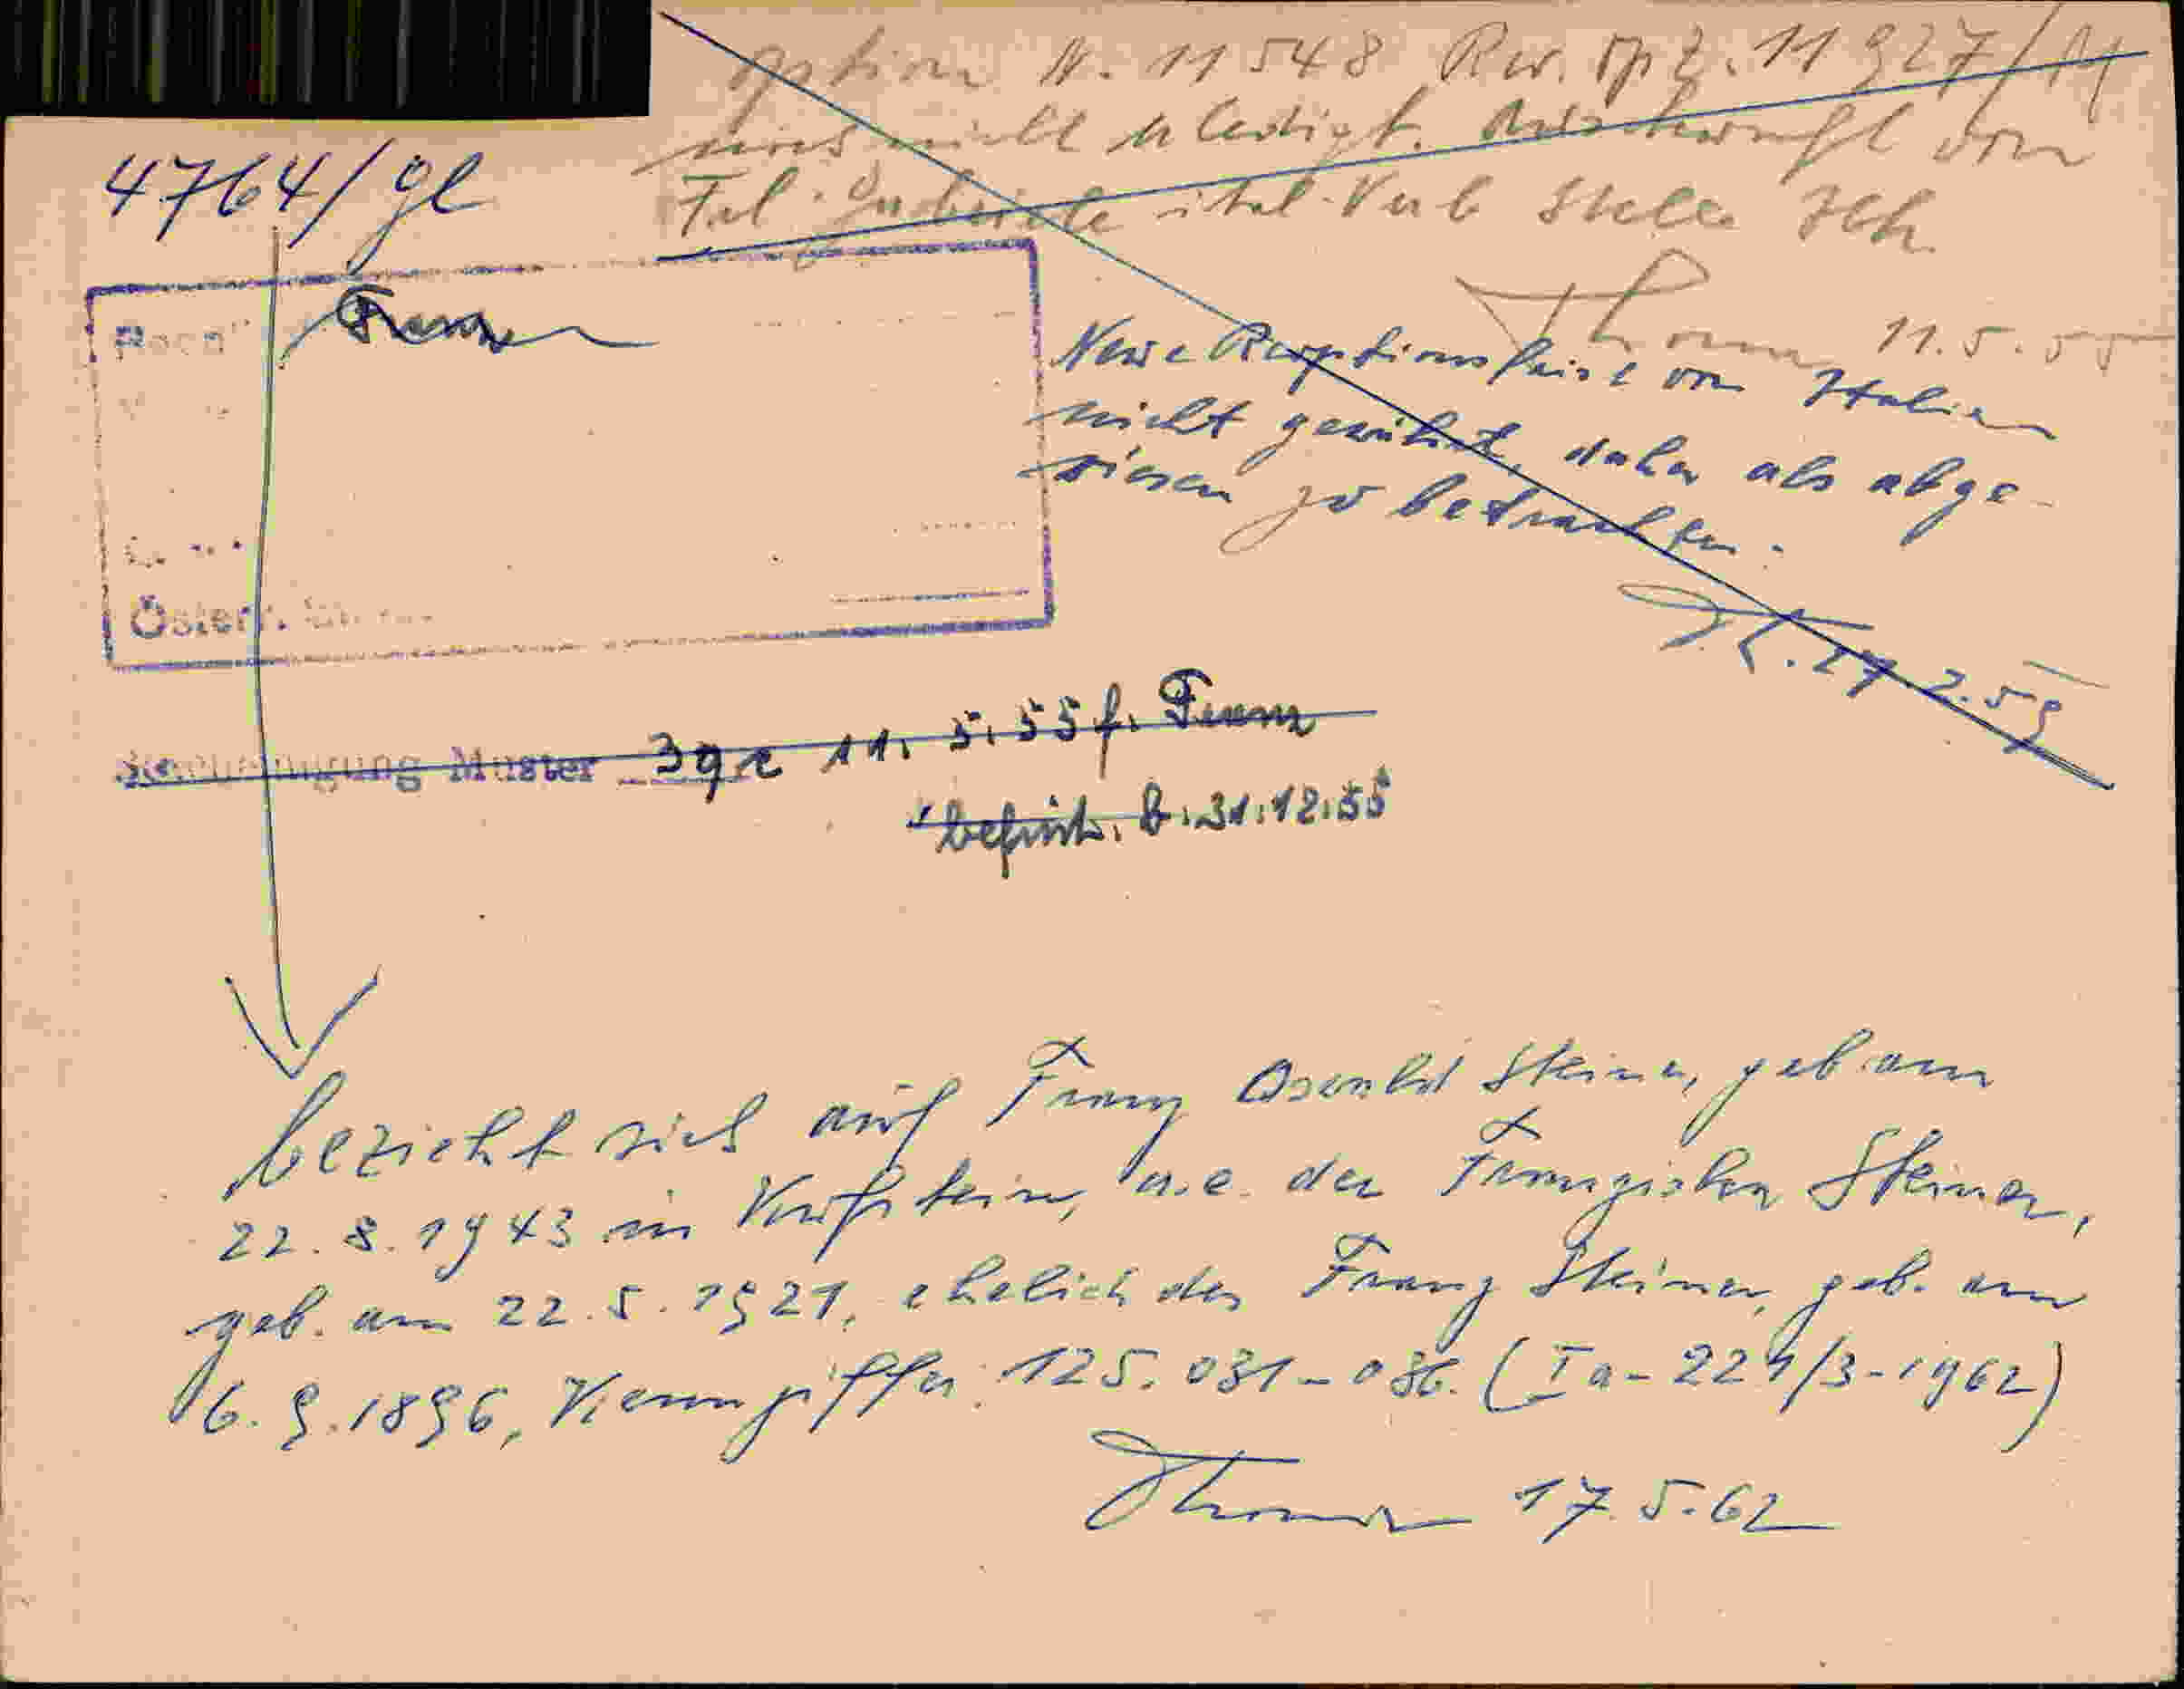 Option N. 11548 Rw. Opt. 11927/
wird nicht erledigt. Auskunft von
Frl. ital. Verb Stelle Ibk.
4764/gl
11.5.55
Neue Reoptionsfrist von Italien
nicht gewährt, daher als abge-
wiesen zu betrachten.
27.2.59
Österr.
Bescheinigung Muster 39 e 11. 5. 55 f.
befrist. b. 31.12.55
bezieht sich auf Franz Oswald Steiner, geb. am
22. 8. 1943 in Kufstein, u.e. der Franziska Steiner,
geb. am 22. 5. 1921, ehelich des Franz Steiner, geb. am
16. 9. 1896, Kennziffer: 125. 031 - 036. (Ia - 224/3 - 1962)
17. 5. 62